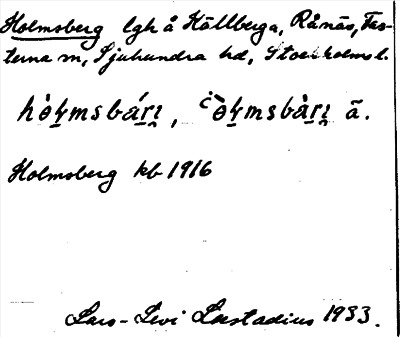 Holmsberg lgh å Källberga, Rånäs, Fas-
terna sn, Sjuhundra hd, Stockholms l.
hὸl̥msbári̯, ὸl̥msbàri̯ ā.
Holmsberg kb 1916
Lars-Levi Læstadius 1933.